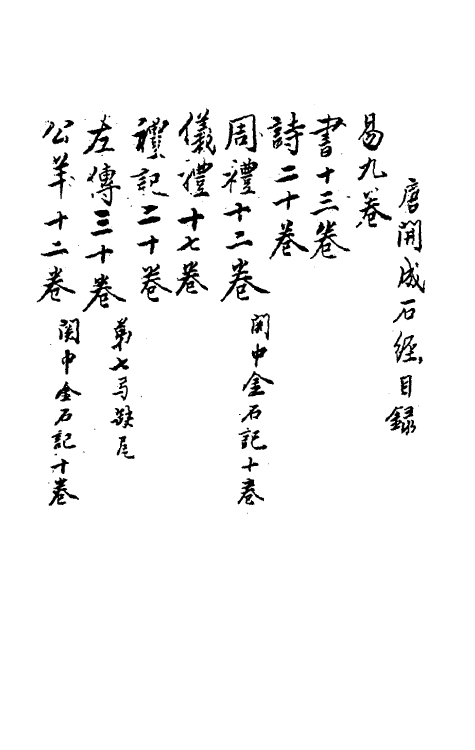 唐開成石經目録
易九卷
書十三卷
詩二十卷
周禮十二卷 関中金石記十卷
儀禮十七卷
禮記二十卷
左傳三十卷 第七号缺尾
公羊十二卷 関中金石記十卷